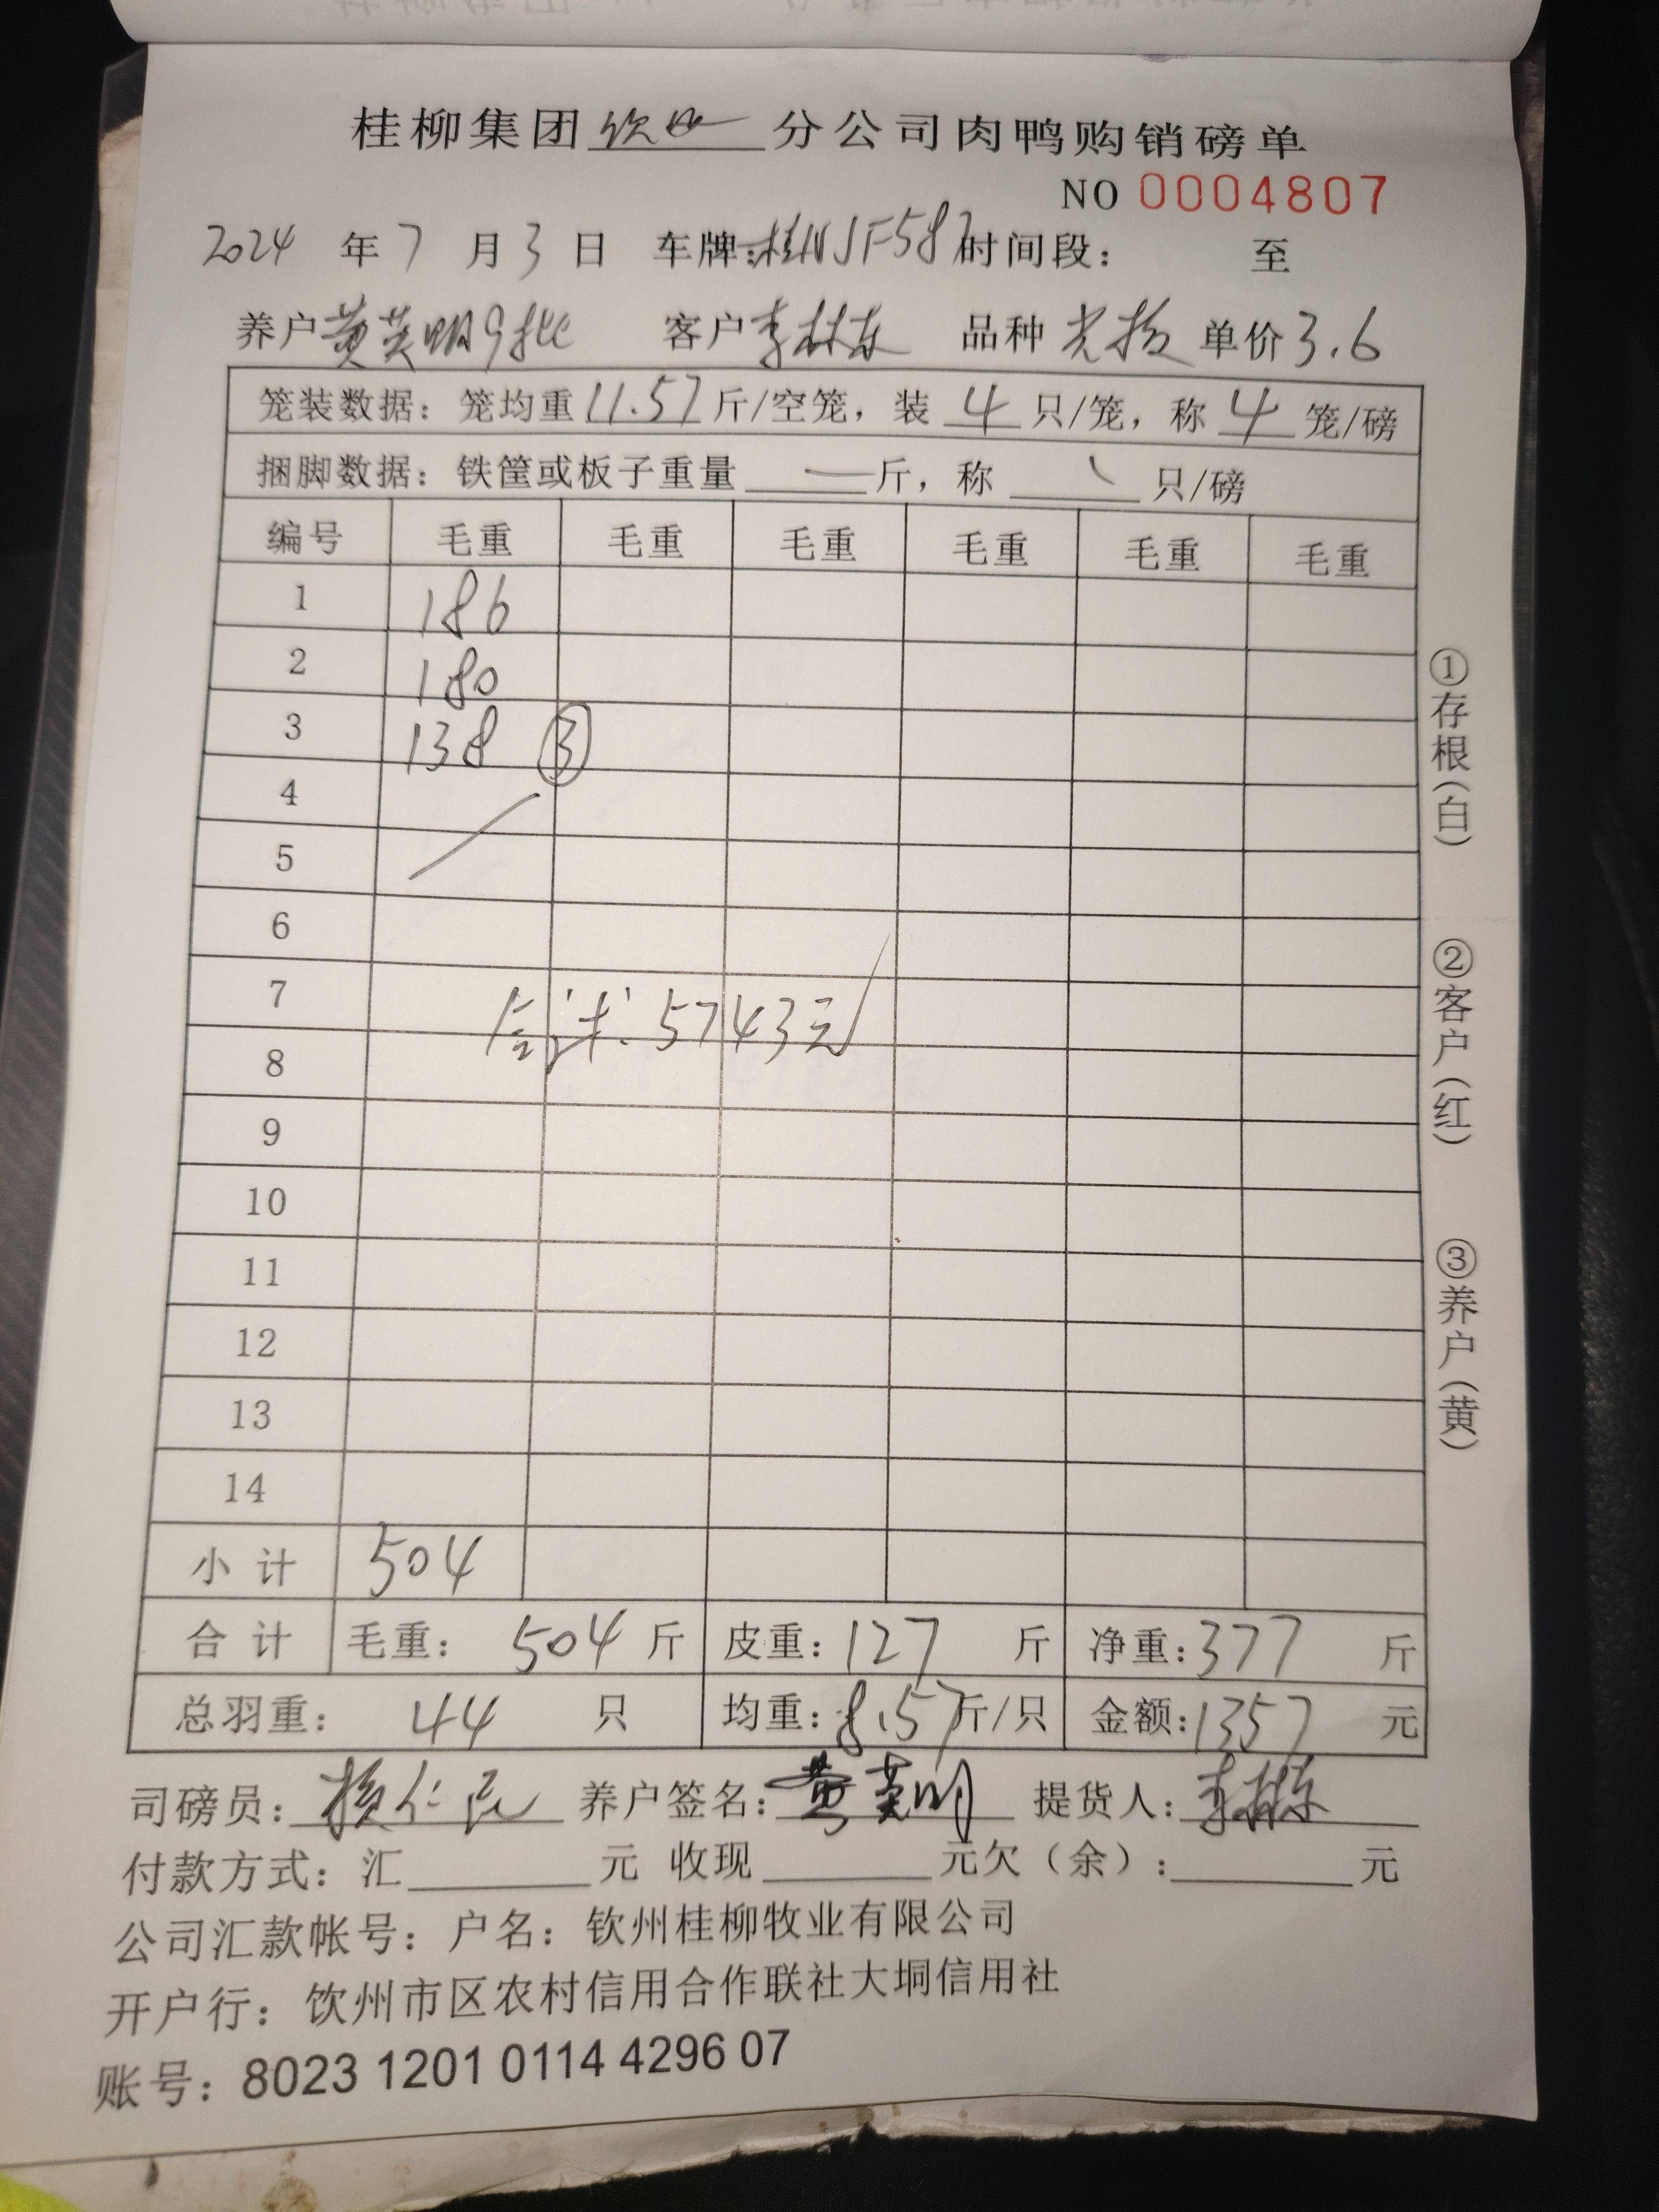 桂柳集团钦州分公司肉鸭购销磅单
NO 0004807
2024年7月3日 车牌:桂NJF587时间段: 至
养户黄英明9批 客户李林东 品种 单价3.6
笼装数据:笼均重11.57斤/空笼,装4只/笼,称4笼/磅
捆脚数据:铁筐或板子重量 — 斤,称 只/磅
编号 毛重 毛重 毛重 毛重 毛重 毛重
1 186
2 180
3 138 ③
4
5
6
7
合计:5743元
8
9
10
11
12
13
14
小计 504
合计 毛重:504斤 皮重:127斤 净重:377斤
总羽重:44只 均重:8.57斤/只 金额:1357元
司磅员:仁 养户签名:黄英明 提货人:李林东
付款方式:汇 元 收现 元欠(余): 元
公司汇款帐号:户名:钦州桂柳牧业有限公司
开户行:饮州市区农村信用合作联社大垌信用社
账号:8023 1201 0114 4296 07
①存根(白)
②客户(红)
③养户(黄)